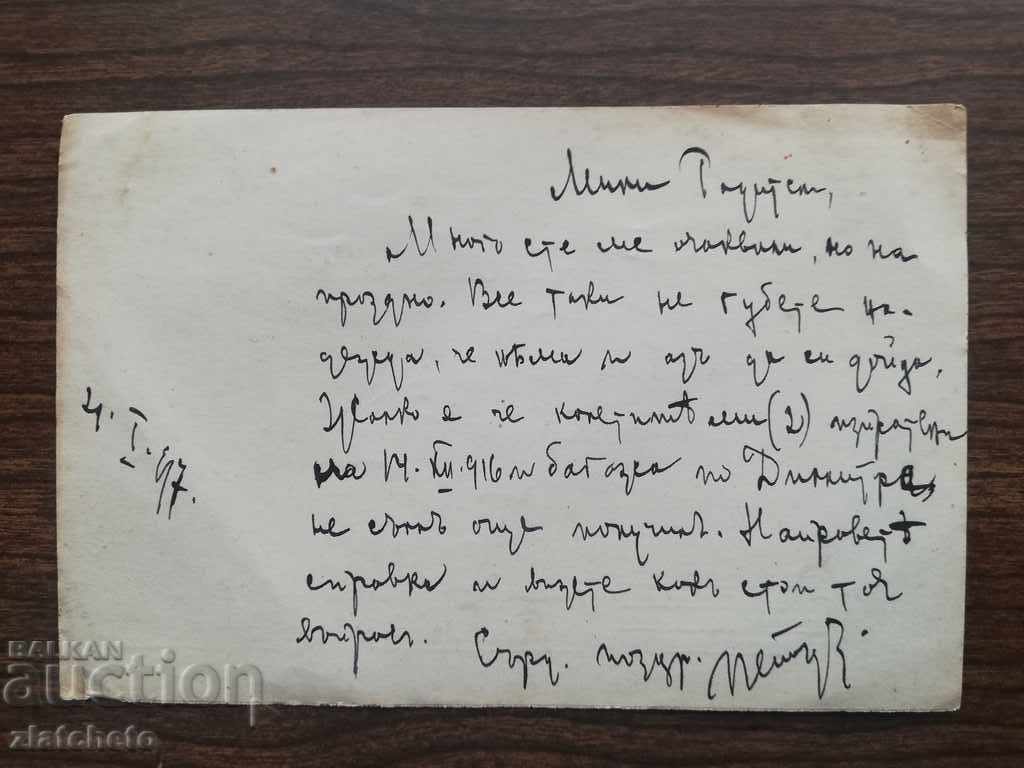 Мили Родители,
Много сте ме очаквали, но на
праздно. Все таки не губете на-
дежда, че нѣма и азъ да си дойда.
Жалко е че колетитѣ ми (2) изпратени
на 14. XII. 916 и багажа по Димитра
не съмъ още получилъ. Направетѣ
справка и вижте какъ стои тоя
въпросъ.
Сърд. поздр. Петъръ
4. I. 917.
BALKAN
auction
zlatcheto